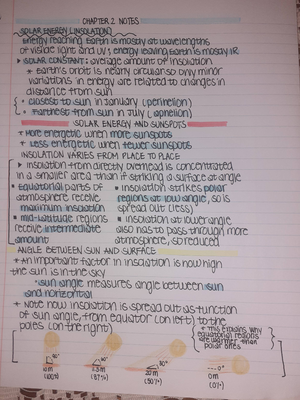 CHAPTER 2 NOTES
SOLAR ENERGY (INSOLATION)
Energy reaching Earth is mostly at wavelengths
of visible light and UV; energy leaving Earth is mostly IR
• SOLAR CONSTANT: average amount of insolation
* Earth's orbit is nearly circular so only minor
variations in energy are related to changes in
distance from sun
• closest to sun in January (perihelion)
• Farthest from sun in July (aphelion)
SOLAR ENERGY AND SUNSPOTS
* More energetic when more sunspots
* Less energetic when fewer sunspots
INSOLATION VARIES FROM PLACE TO PLACE
* Insolation from directly overhead is concentrated
in a smaller area than if striking a surface at angle
• Equatorial parts of
atmosphere receive
maximum insolation
• mid-latitude regions
receive intermediate
amount
• insolation strikes polar
regions at low angle, so is
spread out (less)
• insolation at lower angle
also has to pass through more
atmosphere, so reduced
ANGLE BETWEEN SUN AND SURFACE
* An important factor in insolation is how high
the sun is in the sky
• sun angle measures angle between sun
and horizontal
* Note how insolation is spread out as function
of sun angle, from equator (on left) to the
poles (on the right)
* This explains why
equatorial regions
are warmer than
polar ones
90°
10 m
(100%)
60°
(87%)
30°
20 m
(50%)
0°
0 m
(0%)